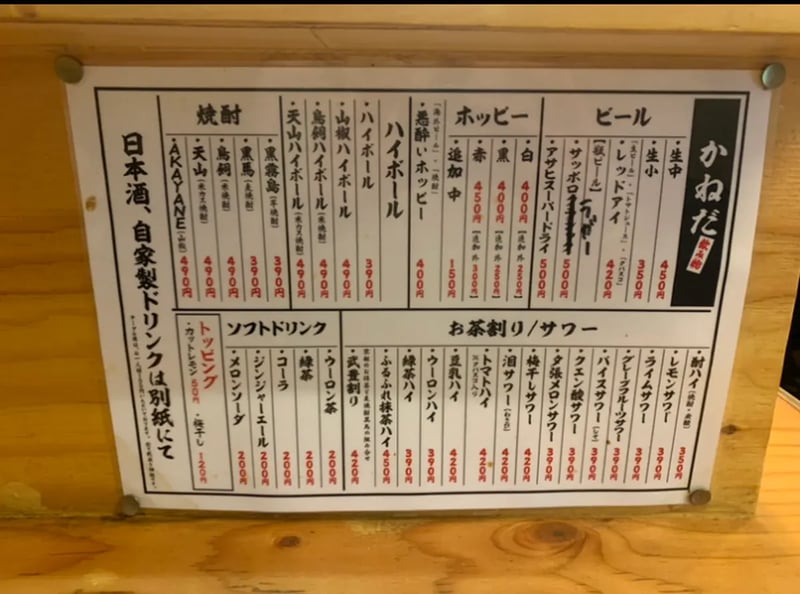 かねだ 飲み物
ビール
・生中 450円
・生小 350円
・レッドアイ 420円
(生ビール)・(トマトジュース)・(タバスコ)
【瓶ビール】
・サッポロ 500円
・アサヒスーパードライ 500円
ホッピー
・白 400円【追加 外 250円】
・黒 400円【追加 外 250円】
・赤 450円【追加 外 300円】
・追加 中 150円
・悪酔いホッピー 400円
ハイボール
・ハイボール 390円
・山椒ハイボール 490円
・鳥飼ハイボール(米焼酎) 490円
・天山ハイボール(米カス焼酎) 490円
焼酎
・黒霧島(芋焼酎) 390円
・黒馬(麦焼酎) 390円
・鳥飼(米焼酎) 490円
・天山(米カス焼酎) 490円
・AKAYANE(山椒) 490円
お茶割り/サワー
・酎ハイ(焼酎・炭酸) 350円
・レモンサワー 390円
・ライムサワー 390円
・グレープフルーツサワー 390円
・バイスサワー(シソ) 390円
・クエン酸サワー 390円
・夕張メロンサワー 390円
・梅干しサワー 420円
・泪サワー(わさび) 420円
・トマトハイ 420円
※タバスコ入り
・豆乳ハイ 420円
・ウーロンハイ 390円
・緑茶ハイ 390円
・ふるふれ抹茶ハイ 450円
・武豊割り 420円
ソフトドリンク
・ウーロン茶 200円
・緑茶 200円
・コーラ 200円
・ジンジャーエール 200円
・メロンソーダ 200円
トッピング
・カットレモン 50円 ・梅干し 120円
日本酒、自家製ドリンクは別紙にて